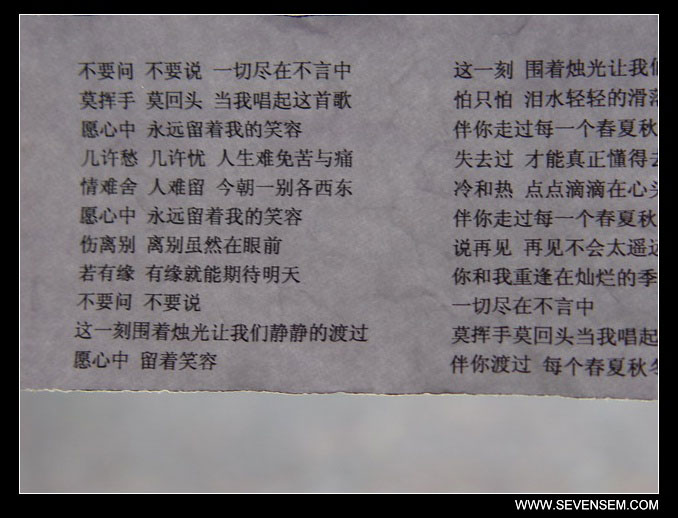 不要问 不要说 一切尽在不言中
莫挥手 莫回头 当我唱起这首歌
愿心中 永远留着我的笑容
几许愁 几许忧 人生难免苦与痛
情难舍 人难留 今朝一别各西东
愿心中 永远留着我的笑容
伤离别 离别虽然在眼前
若有缘 有缘就能期待明天
不要问 不要说
这一刻围着烛光让我们静静的渡过
愿心中 留着笑容
这一刻 围着烛光让我们
怕只怕 泪水轻轻的滑落
伴你走过每一个春夏秋
失去过 才能真正懂得去
冷和热 点点滴滴在心头
伴你走过每一个春夏秋
说再见 再见不会太遥远
你和我重逢在灿烂的季
一切尽在不言中
莫挥手莫回头当我唱起
伴你渡过 每个春夏秋冬
WWW.SEVENSEM.COM